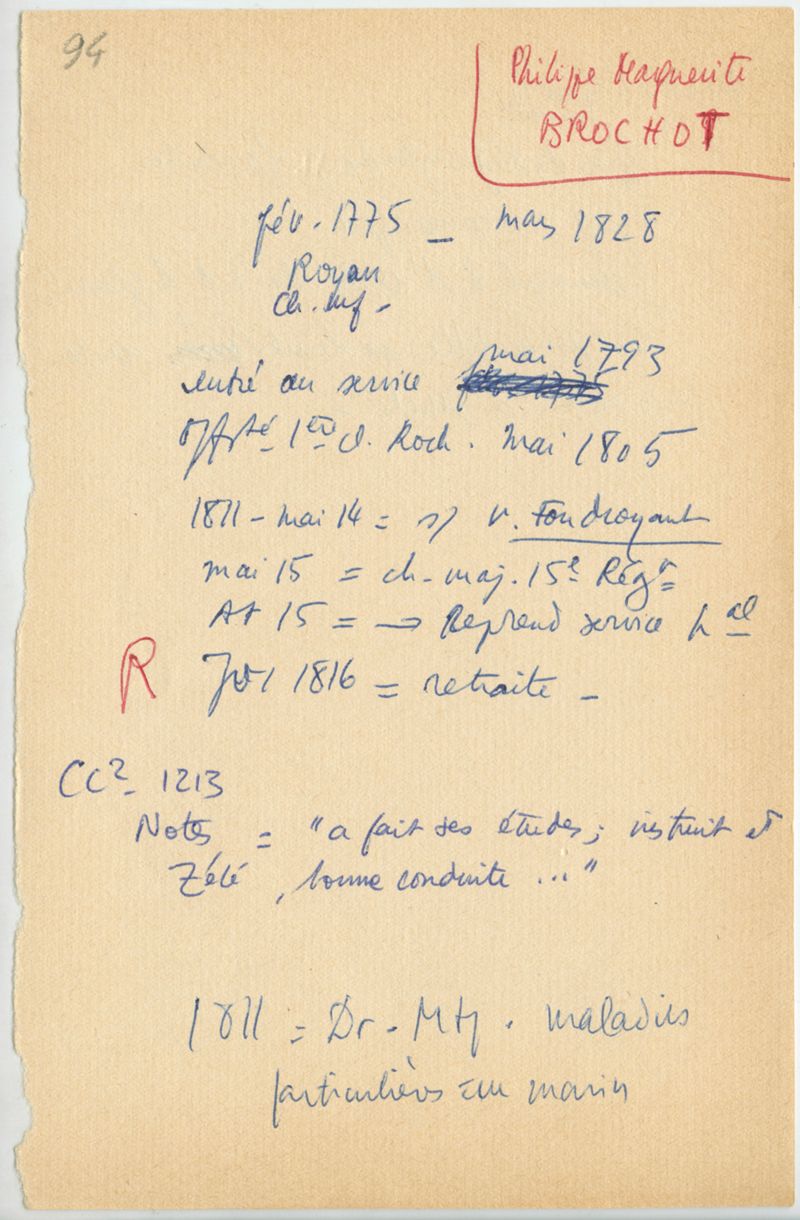 94
Philippe Marguerite
BROCHOT
fév. 1775 — mars 1828
Royan
Ch. inf.
mai 1793
entré au service
1ère cl. Roch. Mai 1805
1811 - mai 14 = s/ v. Foudroyant
mai 15 = ch. maj. 15e Régt
At 15 = → Reprend service hal
R 1816 = retraite -
CC2 - 1213
Notes = "a fait ses études ; instruit et
Zélé, bonne conduite ..."
1811 = Dr - Mtp. maladies
particulières au marin